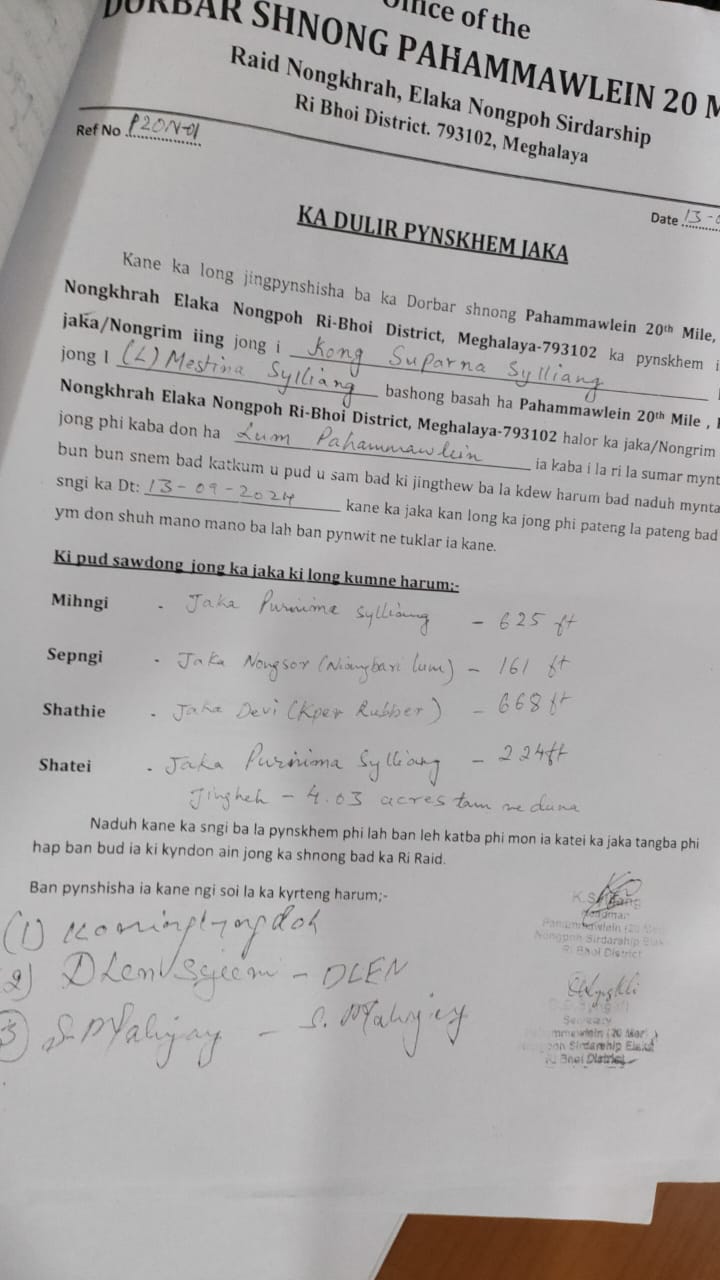 Office of the
DORBAR SHNONG PAHAMMAWLEIN 20 M
Raid Nongkhrah, Elaka Nongpoh Sirdarship
Ri Bhoi District. 793102, Meghalaya
Ref No P20N-01
Date 13-0
KA DULIR PYNSKHEM JAKA
Kane ka long jingpynshisha ba ka Dorbar shnong Pahammawlein 20th Mile,
Nongkhrah Elaka Nongpoh Ri-Bhoi District, Meghalaya-793102 ka pynskhem i
jaka/Nongrim iing jong i Kong Suparna Sylliang
jong I (L) Mestina Sylliang bashong basah ha Pahammawlein 20th Mile ,
Nongkhrah Elaka Nongpoh Ri-Bhoi District, Meghalaya-793102 halor ka jaka/Nongrim
jong phi kaba don ha Lum Pahammawlein ia kaba i la ri la sumar mynt
bun bun snem bad katkum u pud u sam bad ki jingthew ba la kdew harum bad naduh mynta
sngi ka Dt: 13-09-2024 kane ka jaka kan long ka jong phi pateng la pateng bad
ym don shuh mano mano ba lah ban pynwit ne tuklar ia kane.
Ki pud sawdong jong ka jaka ki long kumne harum;-
Mihngi - Jaka Purnima Sylliang - 625 ft
Sepngi - Jaka Nongsor (Niangbari lum) - 161 ft
Shathie - Jaka Devi (Kper Rubber) - 668 ft
Shatei - Jaka Purnima Sylliang - 224ft
Jingheh - 4.03 acres tam ne duna
Naduh kane ka sngi ba la pynskhem phi lah ban leh katba phi mon ia katei ka jaka tangba phi
hap ban bud ia ki kyndon ain jong ka shnong bad ka Ri Raid.
Ban pynshisha ia kane ngi soi la ka kyrteng harum;-
(1)
2) DLEN
3)
Headman
Pahammawlein (20 Mer)
Nongpoh Sirdarship Elaka
Ri Bhoi District
Secretary
mmawlein (20 Mer)
Sirdarship Elaka
Ri Bhoi District